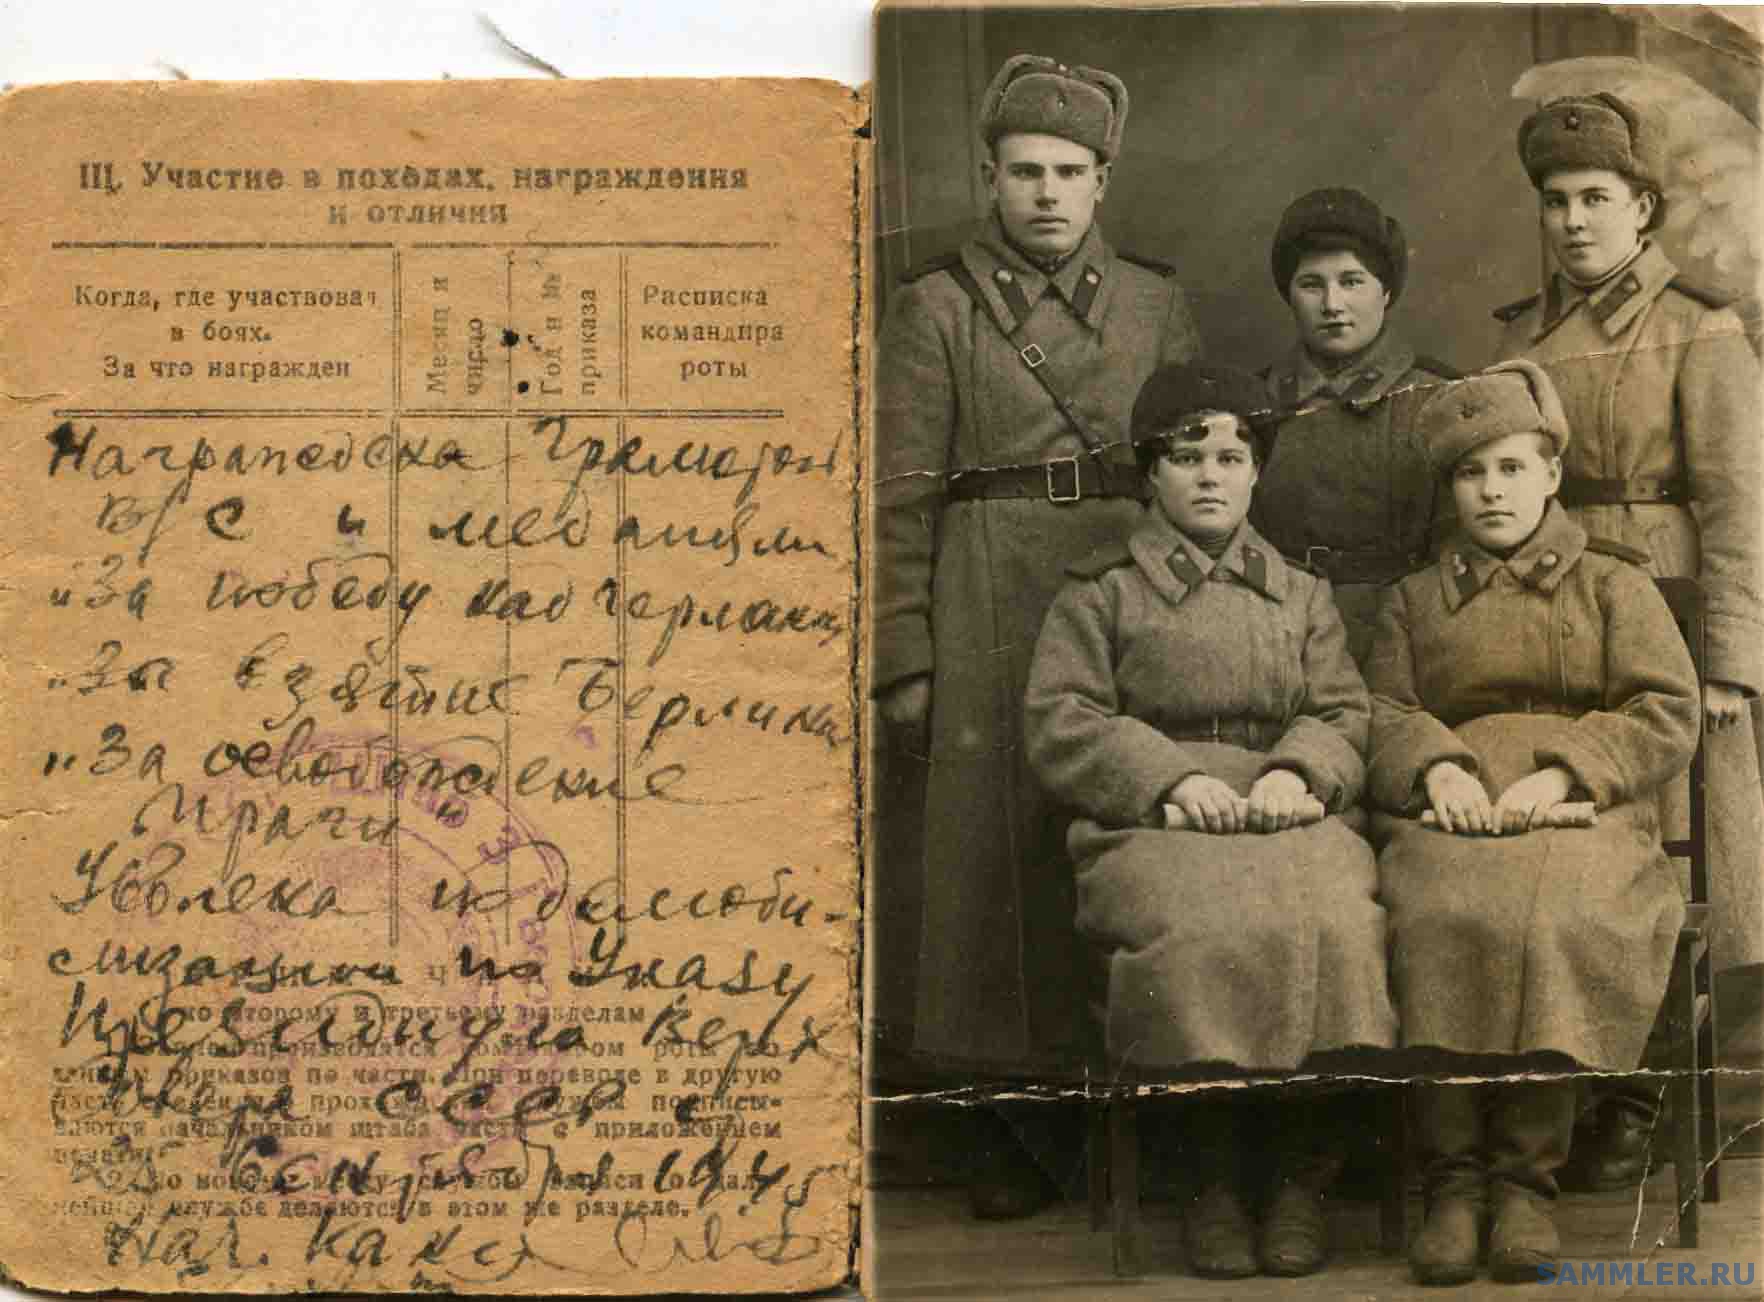 III. Участие в походах, награждения
и отличия
Когда, где участвовал
в боях.
За что награжден
Месяц и
число
Год и №
приказа
Расписка
командира
роты
Награждена Грамотой
В/С и медалями
„За победу над Германи
„За взятие Берлина
„За освобождение
Праги"
Уволена по демоби-
лизации по Указу
Президиума Верх
СССР
по второму и третьему разделам
производятся командиром роты
приказов по части. При переводе в другую
подписы-
ваются начальником штаба части с приложением
печати.
25 сентября 1945
службе делаются в этом же разделе.
Нач.
SAMMLER.RU